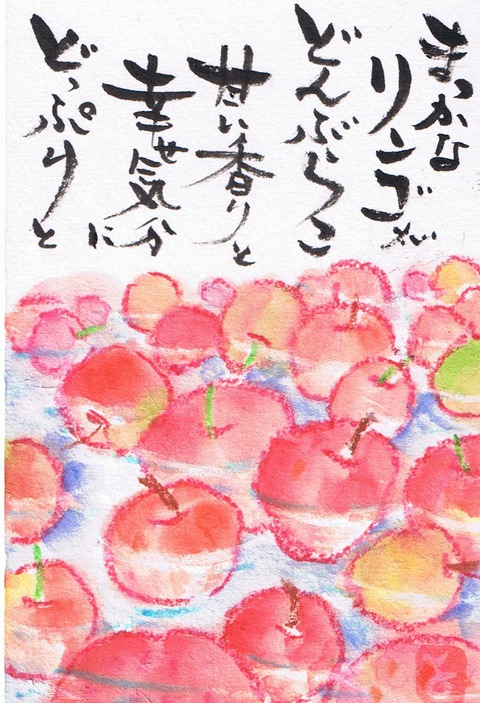 まっかな
リンゴが
どんぶらこ
甘い香りと
幸せ気分に
どっぷりと